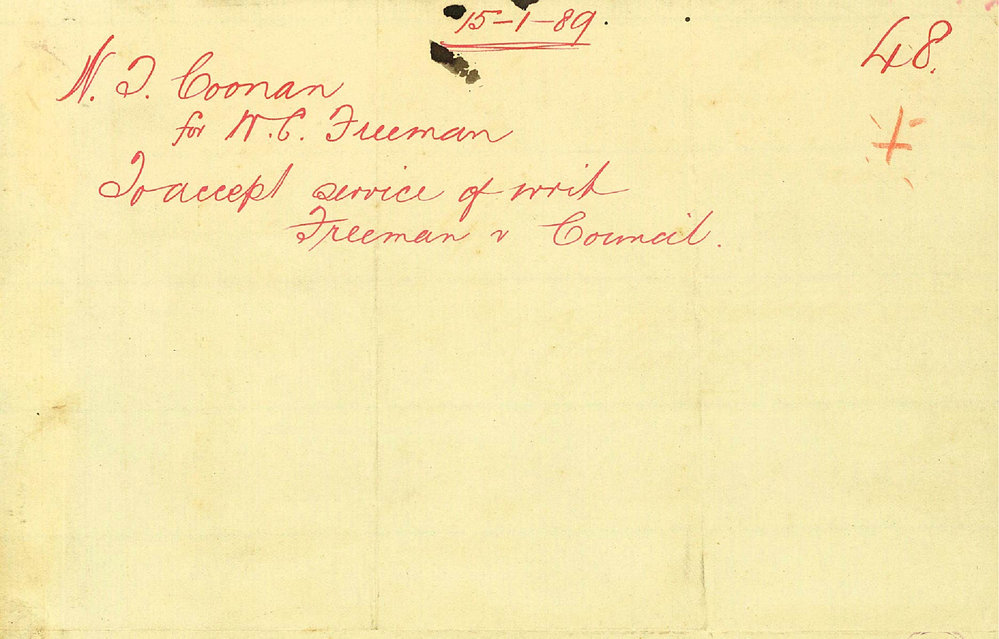 15-1-89.
48.
N. J. Coonan
for W. C. Freeman
To accept service of writ
Freeman v Council.